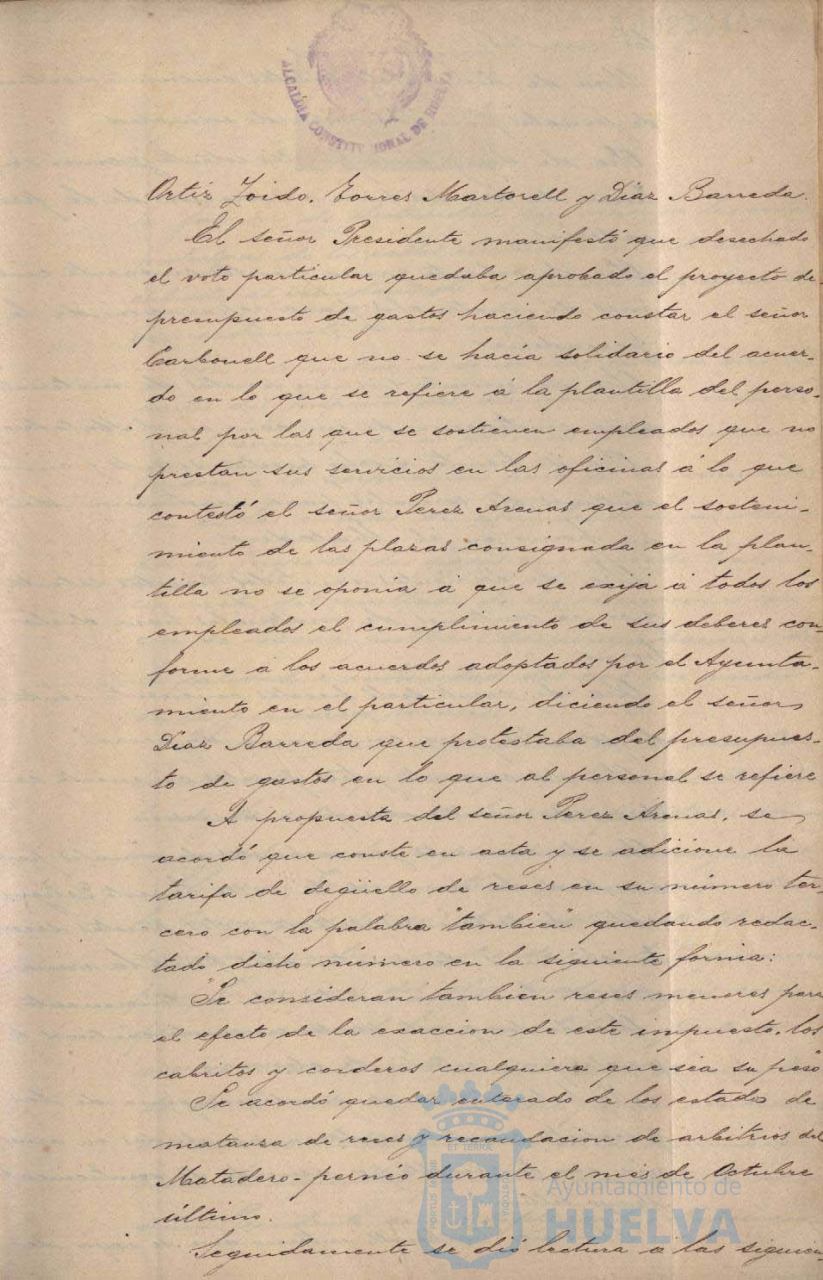 ALCALDÍA CONSTITUCIONAL DE HUELVA
Ortiz Zoido, Torres Martorell y Díaz Barreda.
El señor Presidente manifestó que desechado
el voto particular quedaba aprobado el proyecto de
presupuesto de gastos haciendo constar el señor
Carbonell que no se hacía solidario del acuer-
do en lo que se refiere á la plantilla del perso-
nal por las que se sostienen empleados que no
prestan sus servicios en las oficinas á lo que
contestó el señor Perez Arenas que el sosteni-
miento de las plazas consignada en la plan-
tilla no se oponía á que se exija á todos los
empleados el cumplimiento de sus deberes con-
forme á los acuerdos adoptados por el Ayunta-
miento en el particular, diciendo el señor
Díaz Barreda que protestaba del presupues-
to de gastos en lo que al personal se refiere
A propuesta del señor Perez Arenas, se
acordó que conste en acta y se adicione la
tarifa de degüello de reses en su número ter-
cero con la palabra "tambien" quedando redac-
tado dicho número en la siguiente forma:
"Se consideran tambien reses menores para
el efecto de la exaccion de este impuesto, los
cabritos y corderos cualquiera que sea su peso"
Se acordó quedar enterado de los estados de
matanza de reses y recaudacion de arbitrios del
Matadero-pernéo durante el mes de Octubre
último.
Seguidamente se dió lectura a las siguien-
Ayuntamiento de
HUELVA